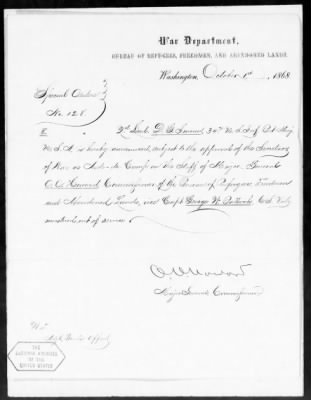 War Department,
BUREAU OF REFUGEES, FREEDMEN, AND ABANDONED LANDS,
Washington, October 1st 1868
Special Orders
No. 128
2d Lieut. D. G. 34th U.S. Inf. Bvt. Maj.
U.S.A. is hereby announced, subject to the approval of the Secretary
of War as Aide-de-Camp on the Staff of Major General
O. O. Howard Commissioner of the Bureau of Refugees Freedmen
and Abandoned Lands, vice Capt. George W. U.S. Vols
mustered out of service.
O O Howard
Major General Commissioner
THE
NATIONAL ARCHIVES
OF THE
UNITED STATES